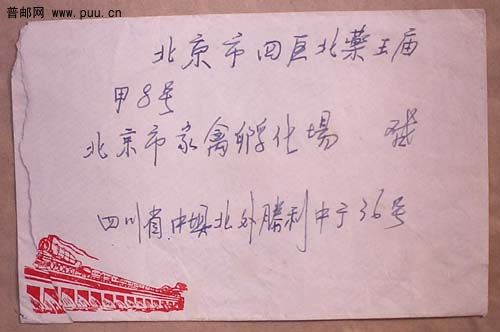 普邮网 www.puu.cn
北京市四巨北藥王庙
甲8号
北京市家禽孵化場
四川省中坝北外勝利中于36号